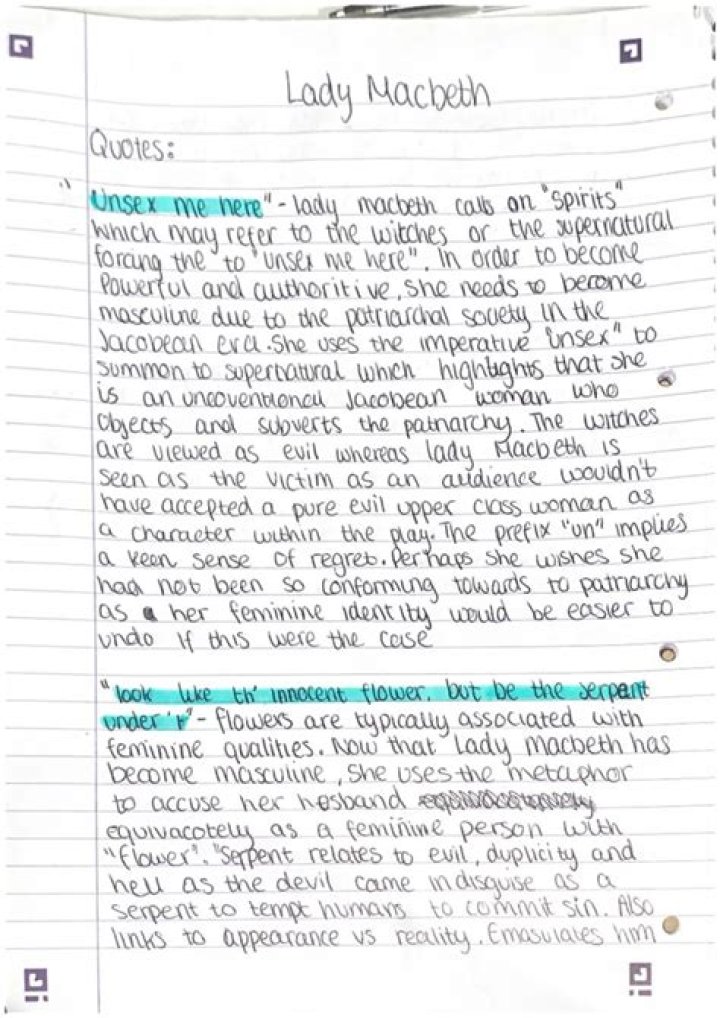 Lady Macbeth
Quotes:
"Unsex me here" - lady macbeth calls on "spirits"
which may refer to the witches or the supernatural
forcing the to "unsex me here". In order to become
Powerful and authoritive, she needs to become
masculine due to the patriarchal society in the
Jacobean era. She uses the imperative "unsex" to
summon to supernatural which highlights that she
is an uncoventional Jacobean woman who
Objects and subverts the patriarchy. The witches
are viewed as evil whereas lady Macbeth is
seen as the victim as an audience wouldn't
have accepted a pure evil upper class woman as
a character within the play. The prefix "un" implies
a keen sense of regret. Perhaps she wishes she
had not been so conforming towards to patriarchy
as her feminine identity would be easier to
undo if this were the case
"look like th' innocent flower, but be the serpent
under't" - flowers are typically associated with
feminine qualities. Now that Lady macbeth has
become masculine, she uses the metaphor
to accuse her hosband
equivacotely as a feminine person with
"flower". "Serpent relates to evil, duplicity and
hell as the devil came in disguise as a
serpent to tempt humans to commit sin. Also
links to appearance vs reality. Emasulates him